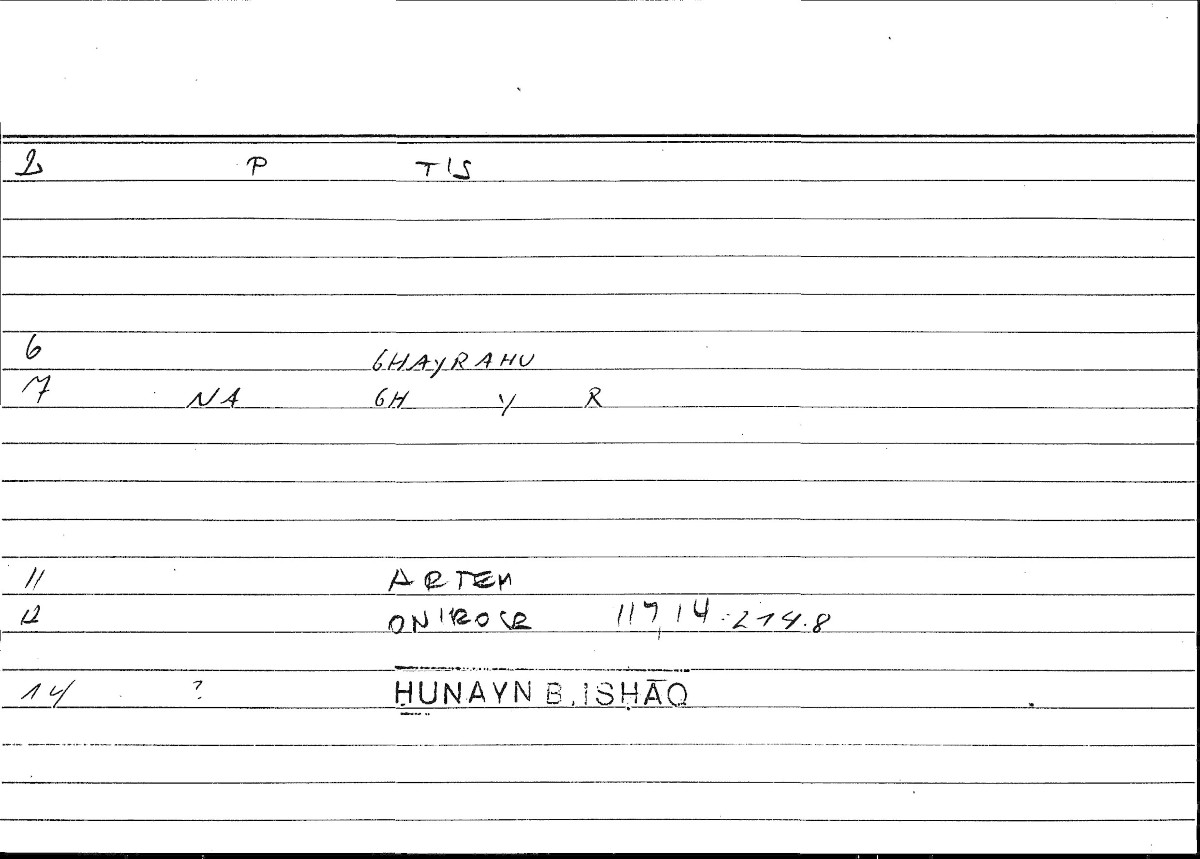 2 P TIS
6 GHAYRAHU
7 NA GH Y R
11 ARTEM
12 ONIROCR 117,14 - 214.8
14 ? ḤUNAYN B. ISḤĀQ